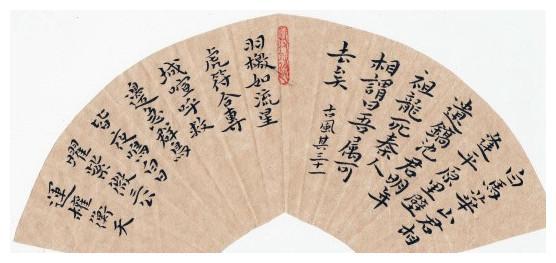 白馬華山君相
逢平原里璧
遺鎬池君明年
祖龍死秦人
相謂曰吾属可
去矣 古風其三十一
羽檄如流星
虎符合專
城喧呼救
邊急群鳥
皆夜鳴白日
曜紫微三公
運權衡天